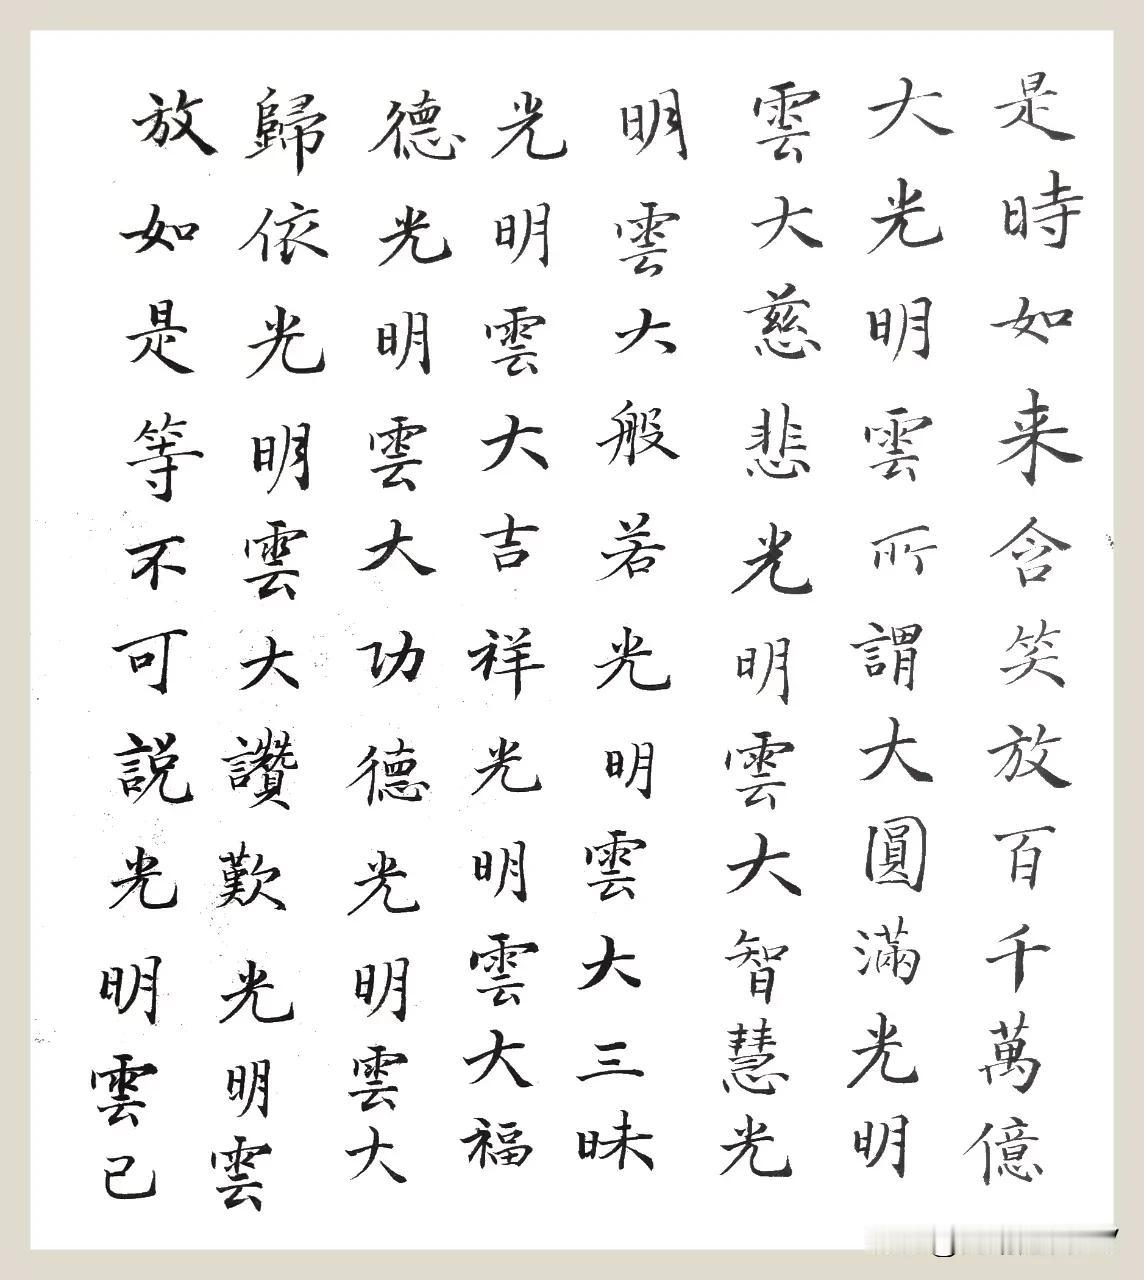 是時如来含笑放百千萬億
大光明雲所謂大圓滿光明
雲大慈悲光明雲大智慧光
明雲大般若光明雲大三昧
光明雲大吉祥光明雲大福
德光明雲大功德光明雲大
歸依光明雲大讚歎光明雲
放如是等不可説光明雲已